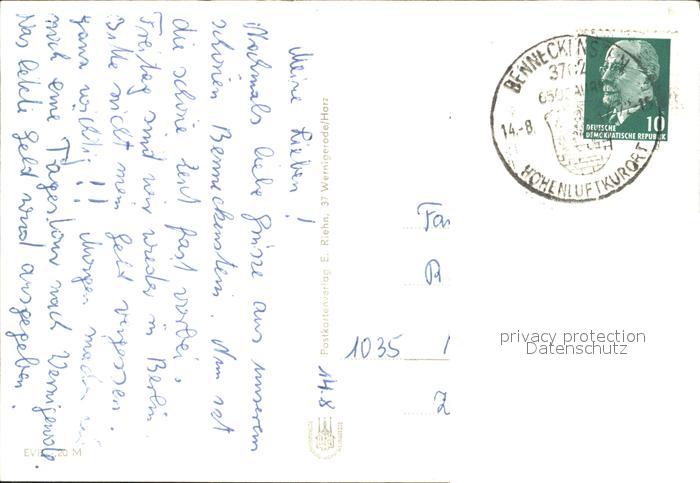 Meine Lieben!
Nochmals liebe Grüsse aus unserem
schönen Benneckenstein. Nun ist
die schöne Zeit fast vorbei,
Freitag sind wir wieder in Berlin.
Bitte nicht mein Geld vergessen.
ganz wichtig!! Morgen machen wir
noch eine Tagestour nach Wernigerode.
Das letzte Geld wird ausgegeben.
Postkartenverlag E. Riehn, 37 Wernigerode/Harz
14.8
EV 20 M
BENNECKENSTEIN
14.-8.
HÖHENLUFTKURORT
DEUTSCHE
DEMOKRATISCHE REPUBLIK
10
Fa
B
1035
privacy protection
Datenschutz